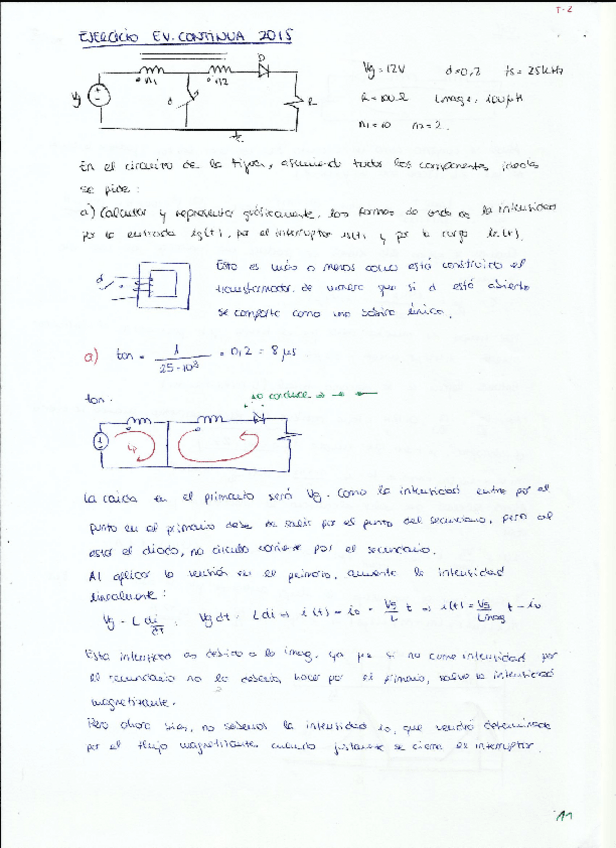 T-2
EJERCICIO EV. CONTINUA 2015
Vg = 12V d=0,2 fs = 25kHz
R = 100Ω Lmag = 100μH
n1 = 10 n2 = 2.
Vg n1 d n2 D R
En el circuito de la figura, asumiendo todos los componentes ideales
se pide:
a) Calcular y representar gráficamente, las formas de onda de la intensidad
por la entrada ig(t), por el interruptor is(t) y por la carga
Esto es más o menos como está construido el
transformador, de manera que si d está abierto
se comporta como una bobina única.
d
a) ton = 1 / 25·10³ · 0,2 = 8 μs.
ton.
no conduce
La caída en el primario será Vg. Como la intensidad entra por el
punto en el primario debe de salir por el punto del secundario, pero al
estar el diodo, no circula corriente por el secundario.
Al aplicar la tensión en el primario, aumenta la intensidad
linealmente:
Vg = L di/dt ; Vg dt = L di ⇒ i(t) - io = Vg/L t ⇒ i(t) = Vg/Lmag t - io
Esta intensidad es debida a la imag, ya que si no circula intensidad por
el secundario no lo debería hacer por el primario, salvo la intensidad
magnetizante.
Pero ahora bien, no sabemos la intensidad io, que vendrá determinada
por el flujo magnetizante cuando justamente se cierra el interruptor.
A1